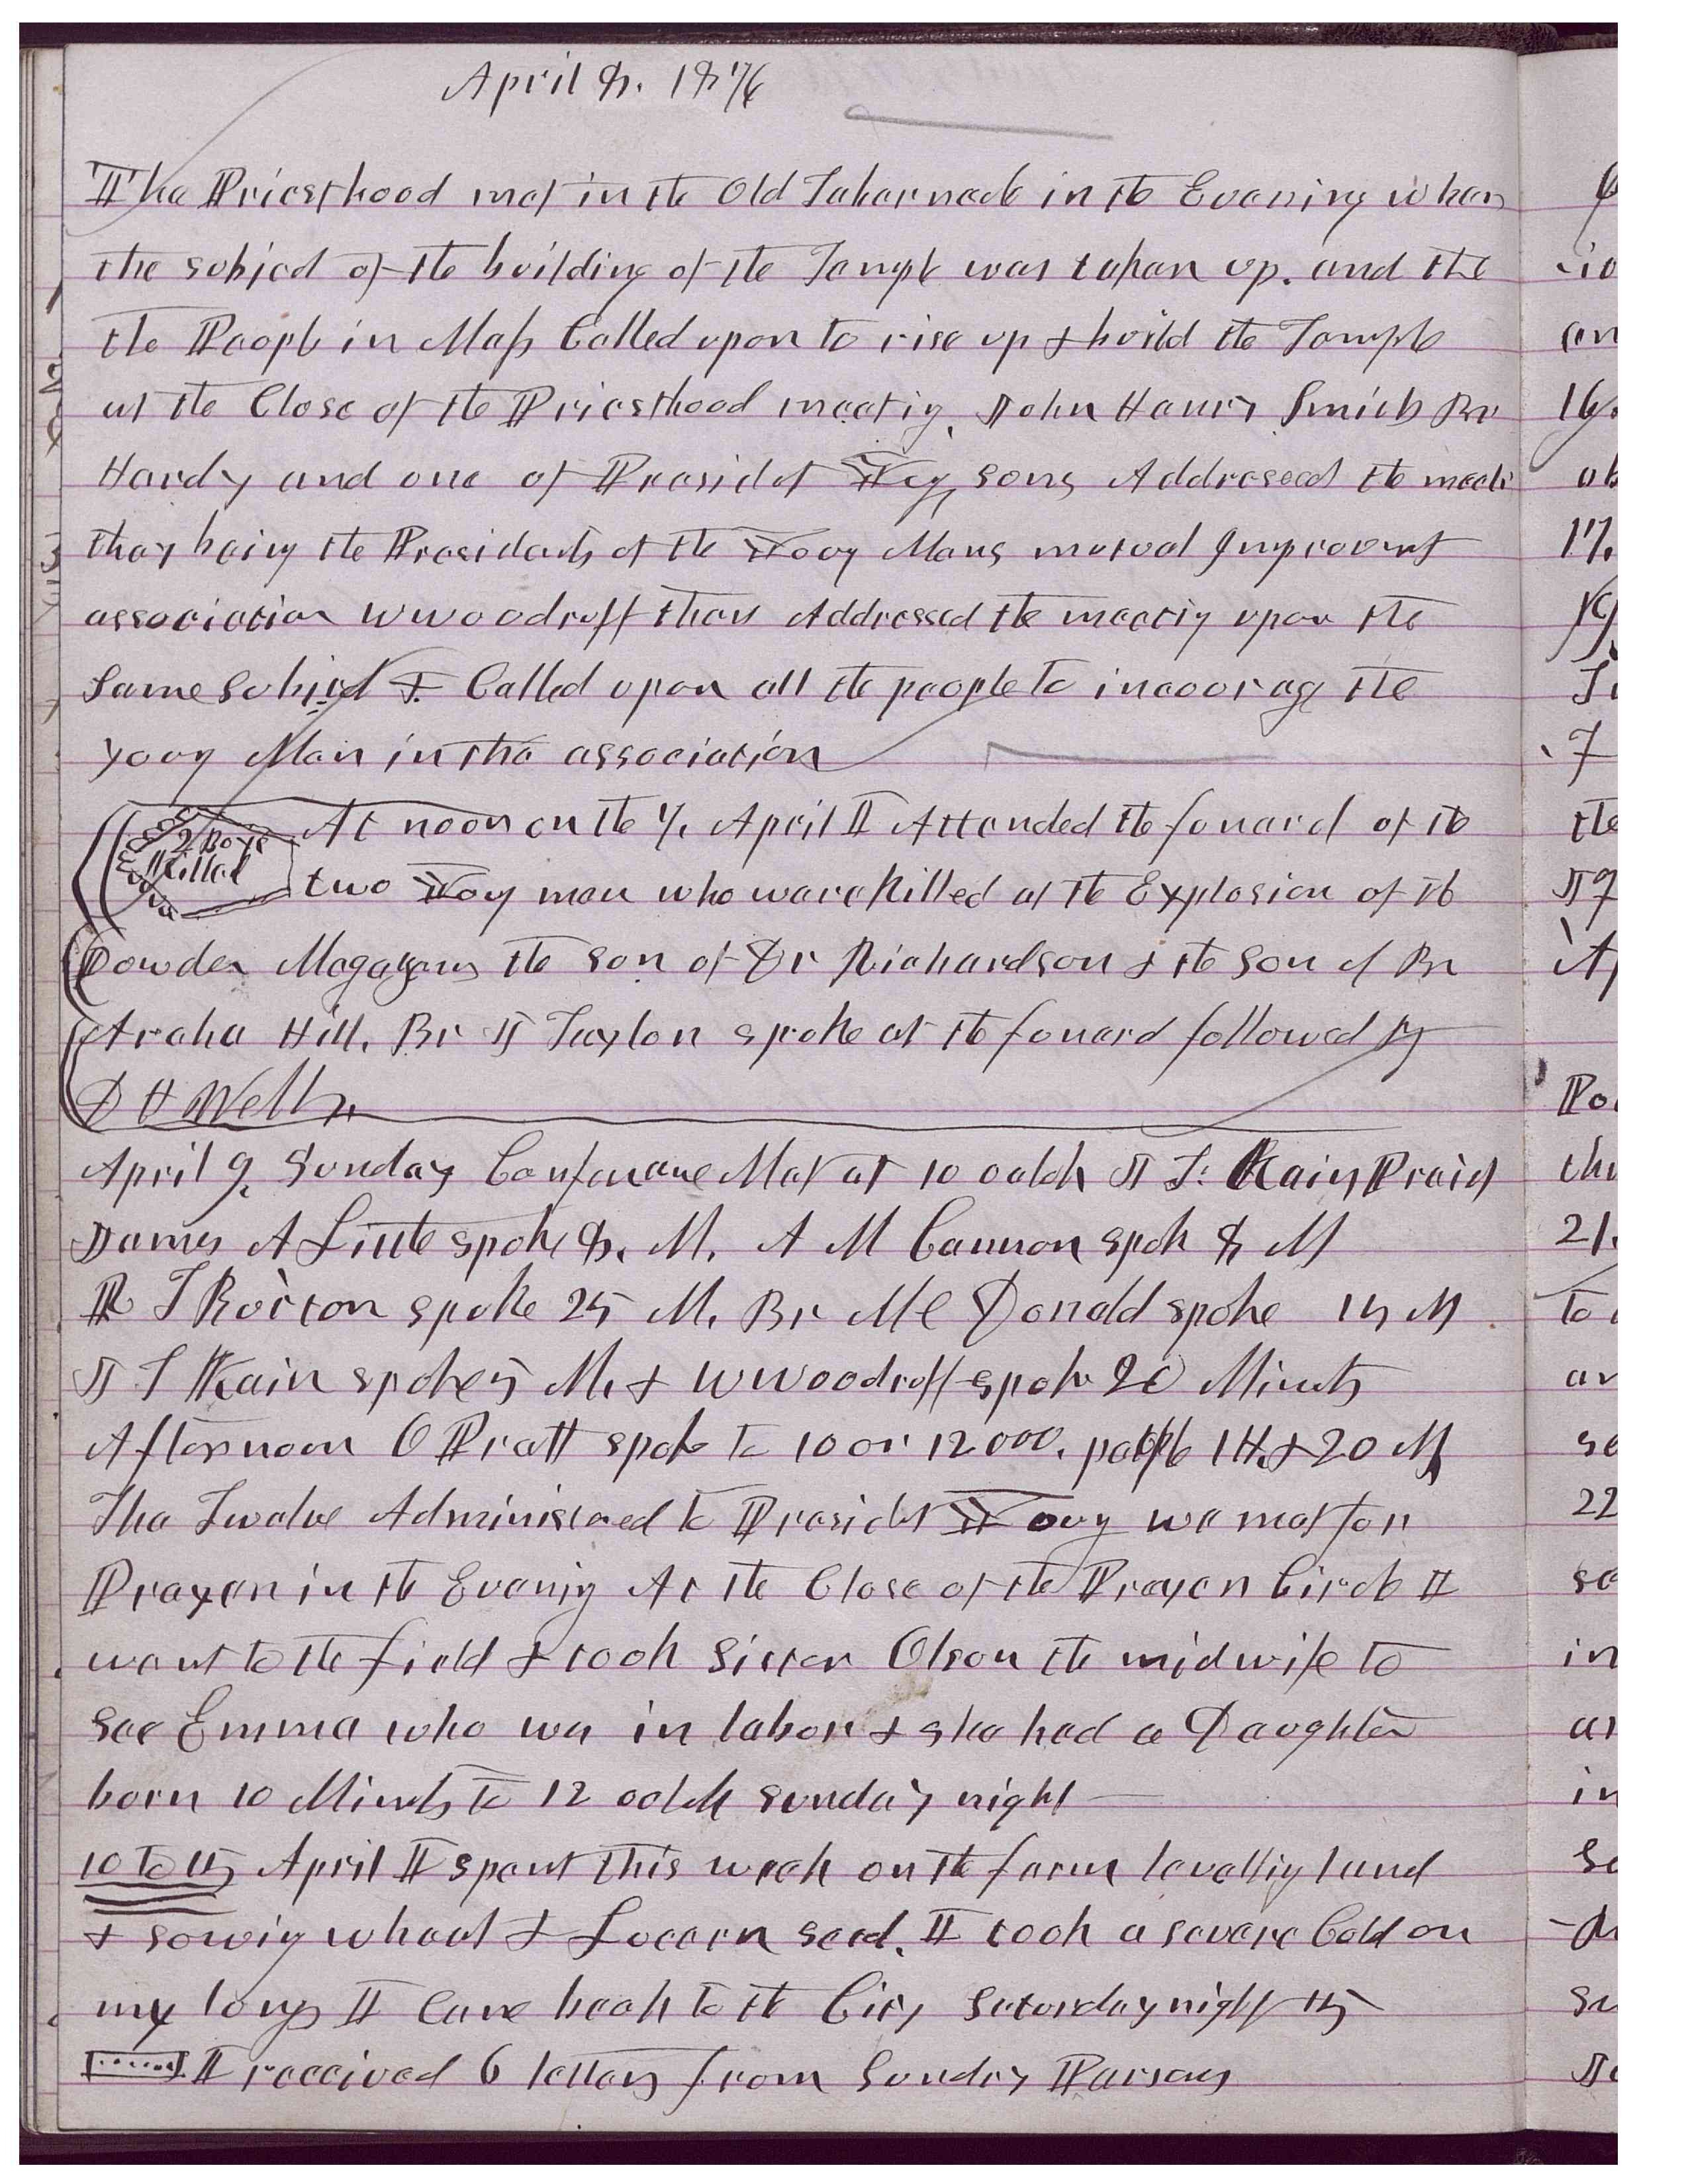 April 8. 1876
The Priesthood met in the Old Tabernacle in the Evening when
the subject of the building of the Temple was taken up. and the
the People in Mass Called upon to rise up & build the Temple
at the Close of the Priesthood meetig, John Henry Smith Br
Hardy and one of Presidet Yog, sons Addressed the meeti
they being the Presidents of the Youg Mens mutual Improvemt
association W Woodruff then Addressed the meetig upon the
Same subject &. Called upon all the people to incourage the
youg Men in the association
2 Boys Killed
At noon on the 7, April I Attended the funeral of the
two Youg men who ware killed at the Explosion of the
Powder Magazens the son of Dr Richardson & the son of Br
Archa Hill, Br J Taylor spoke at the funeral followed by
D H Wells,
April 9, Sunday Conference Met at 10 oclok J T. Kain Praid
James A Little spoke 8. M, A M Cannon spok 8 M
R T Burton spoke 25 M, Br Mc Donald spoke 15 M
J T Kain spoke 5 M, & W Woodruff spoke 20 Minuts
Afternoon O Pratt spoke to 10 or 12000. people 1 H, & 20 M,
The Twelve Administered to Presidet Young we met for
Prayer in the Evenig At the Close of the Prayer Circle I
went to the field & took Sister Olson the midwife to
see Emma who was in labor & she had a Daughter
born 10 Minuts to 12 oclok sunday night
10 to 15 April I spent this week on the farm levellig land
& sowig wheat & Lucern seed, I took a severe Cold on
my lungs I came back to the City Saturday night 15
I received 6 letters from Sundry Persons